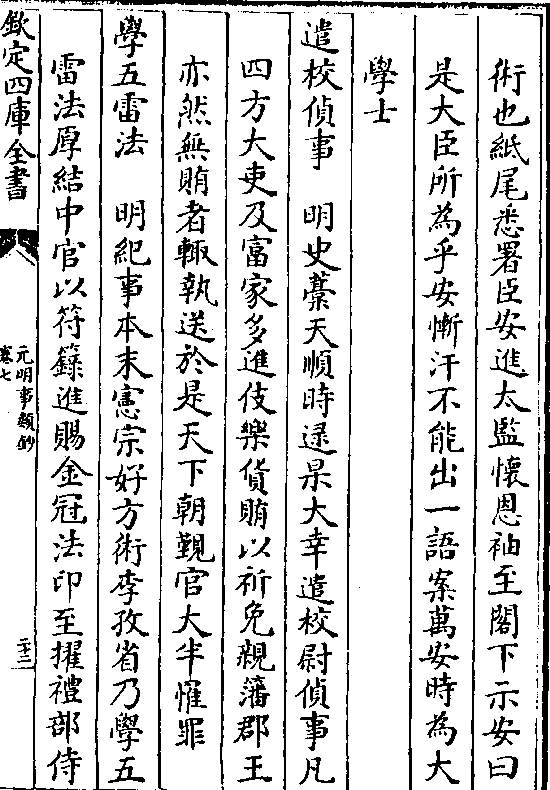 術也紙尾悉署臣安進太監懷恩袖至閣下示安曰
是大臣所為乎安慚汗不能出一語案萬安時為大
學士
遣校偵事　明史藁天順時逯杲大幸遣校尉偵事凡
四方大吏及富家多進伎樂貨賄以祈免親藩郡王
亦然無賄者輙執送於是天下朝覲官大半惟罪
學五雷法　明紀事本末憲宗好方術李孜省乃學五
雷法厚結中官以符籙進賜金冠法印至擢禮部侍
欽定四庫全書
元明事類鈔
卷七
二十二